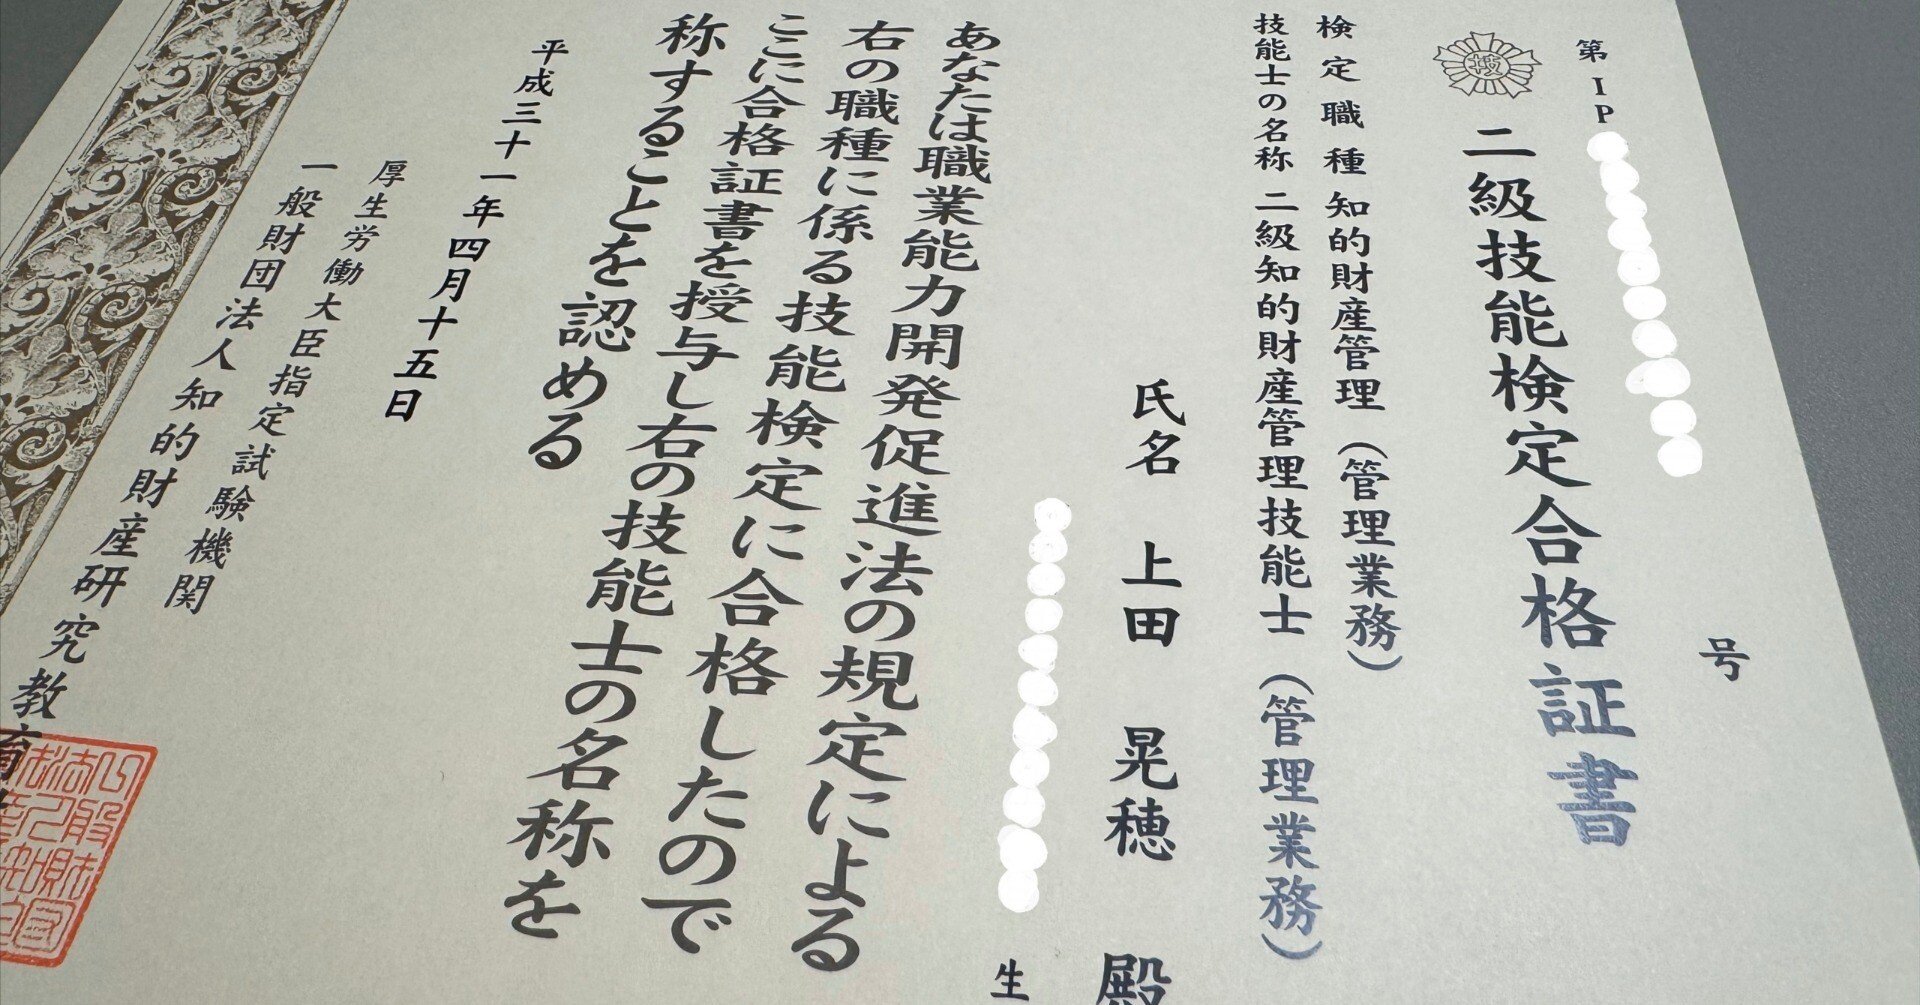 第IP
号
技
二級技能検定合格証書
検定職種 知的財産管理（管理業務）
技能士の名称 二級知的財産管理技能士（管理業務）
氏名 上田 晃穂 殿
生
あなたは職業能力開発促進法の規定による
右の職種に係る技能検定に合格したので
ここに合格証書を授与し右の技能士の名称を
称することを認める
平成三十一年四月十五日
厚生労働大臣指定試験機関
一般財団法人知的財産研究教育